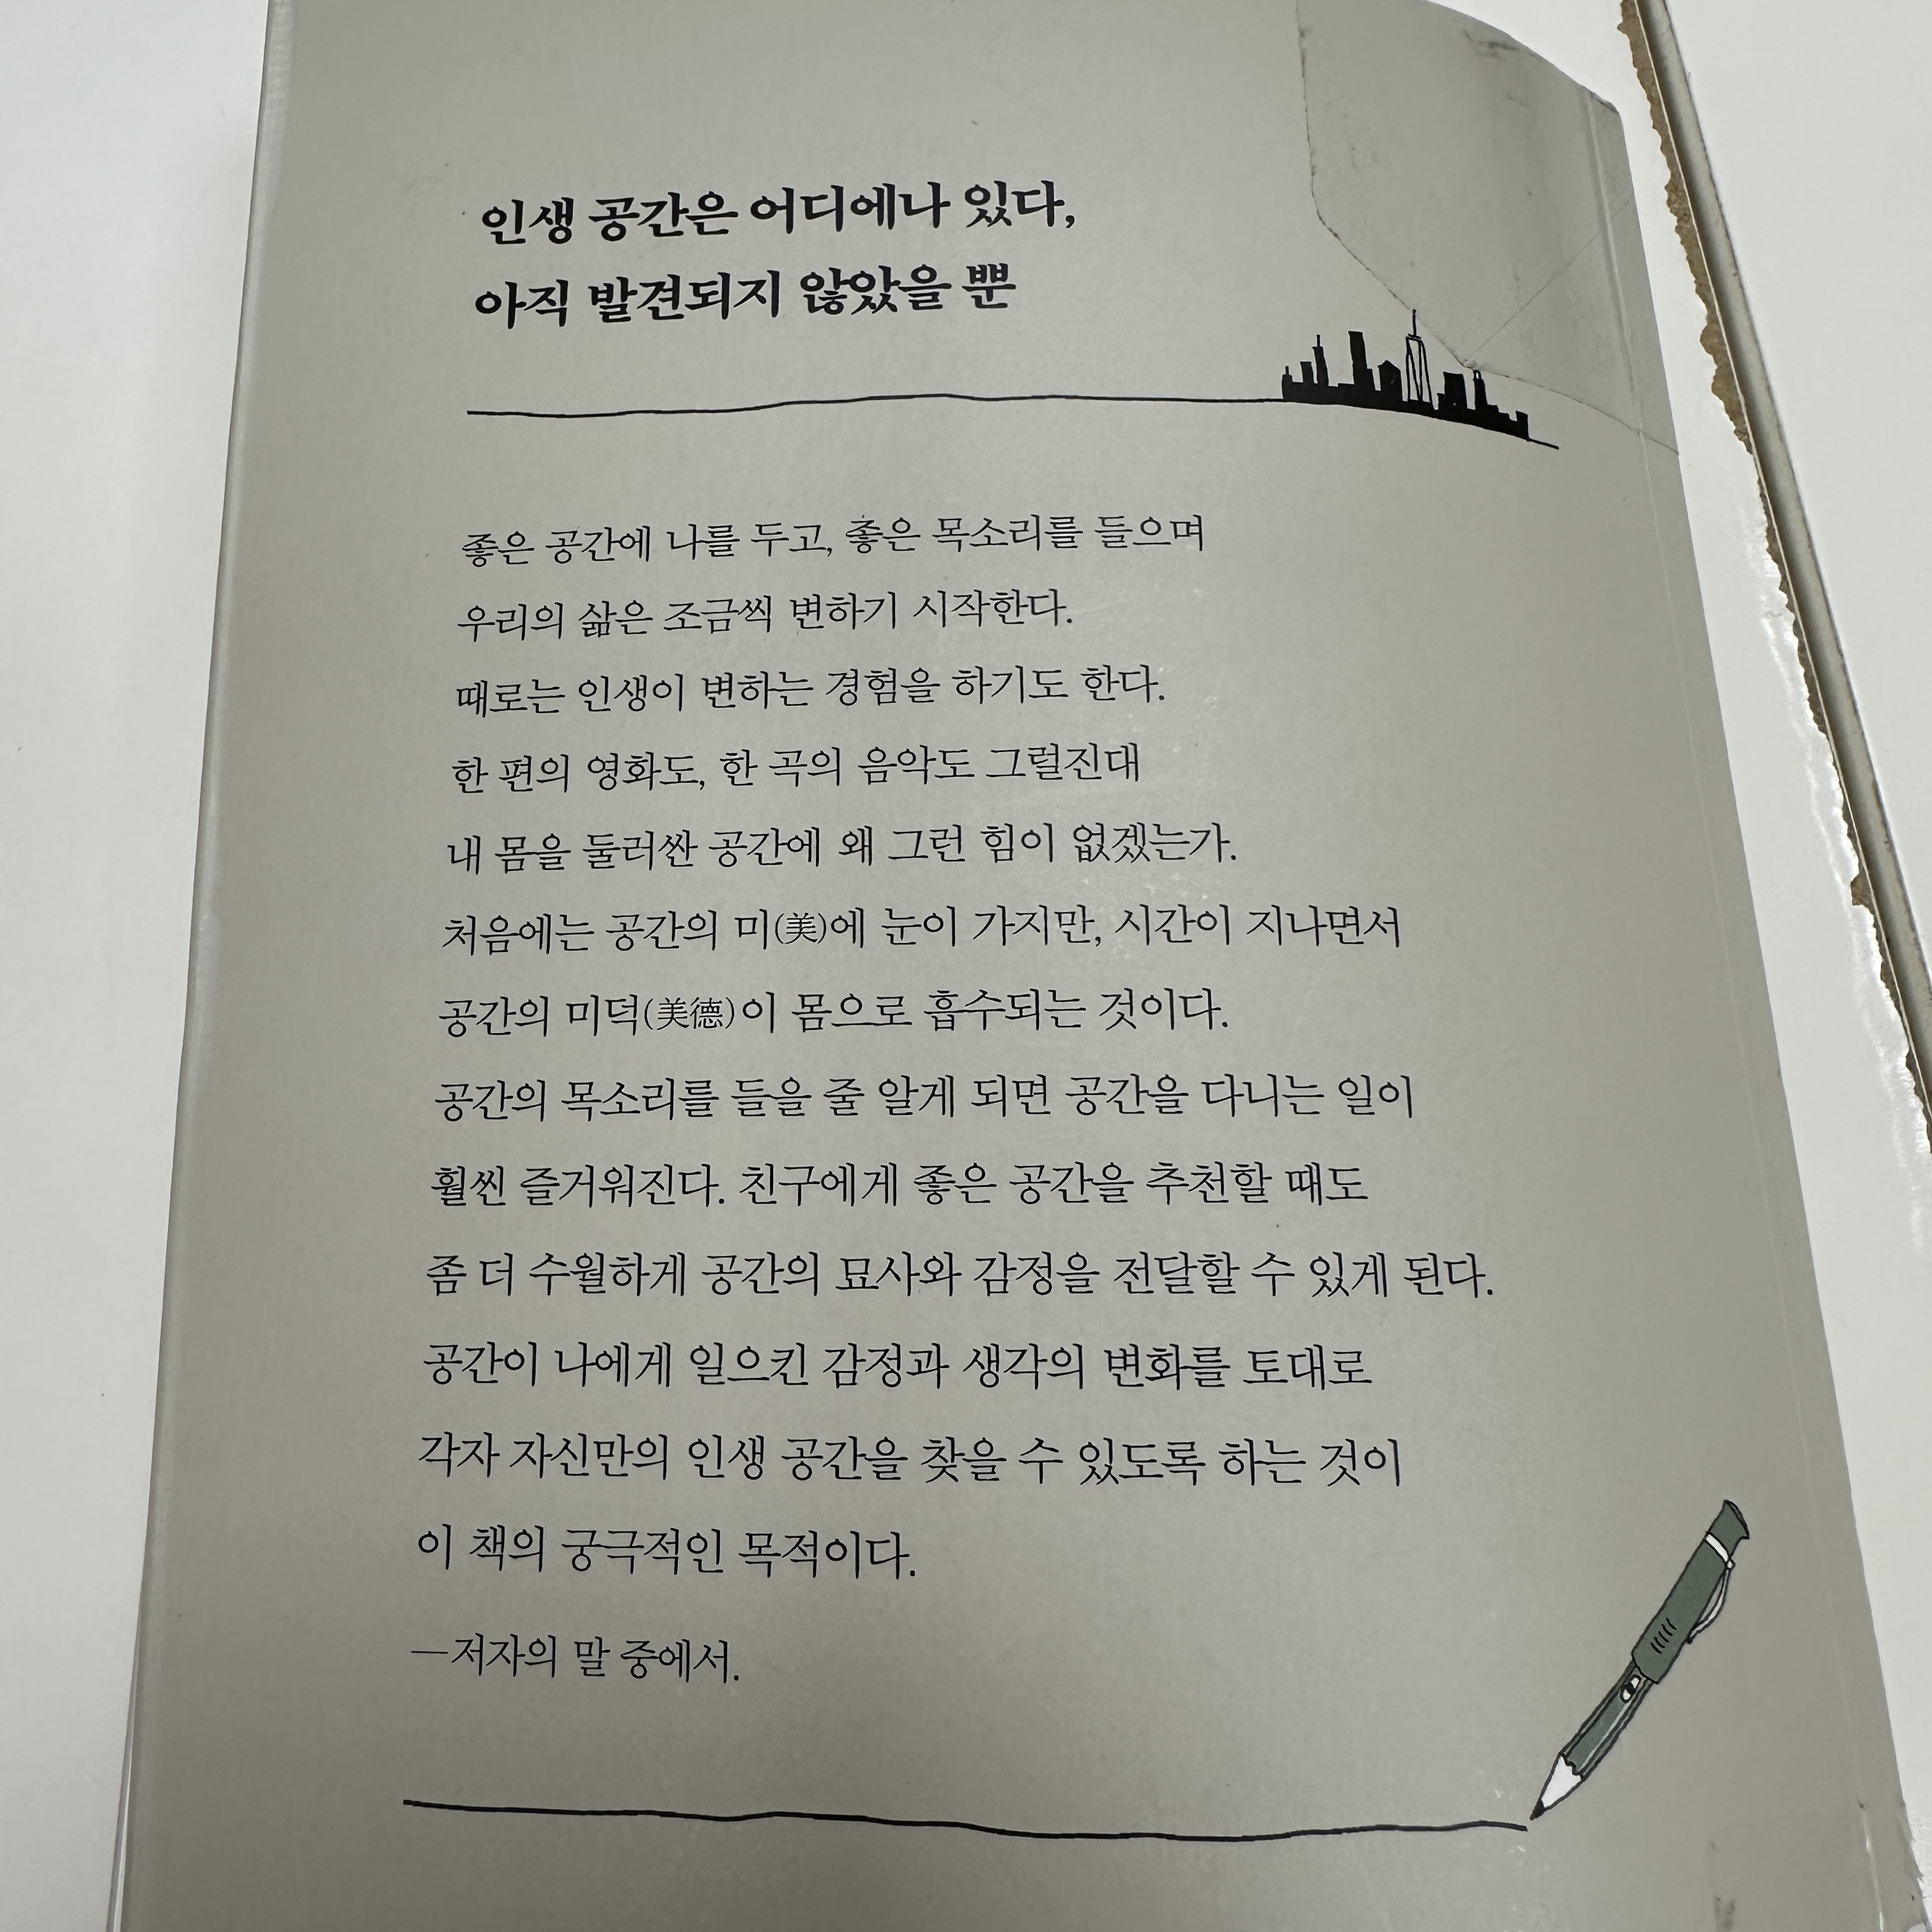 인생 공간은 어디에나 있다,
아직 발견되지 않았을 뿐
좋은 공간에 나를 두고, 좋은 목소리를 들으며
우리의 삶은 조금씩 변하기 시작한다.
때로는 인생이 변하는 경험을 하기도 한다.
한 편의 영화도, 한 곡의 음악도 그럴진대
내 몸을 둘러싼 공간에 왜 그런 힘이 없겠는가.
처음에는 공간의 미(美)에 눈이 가지만, 시간이 지나면서
공간의 미덕(美德)이 몸으로 흡수되는 것이다.
공간의 목소리를 들을 줄 알게 되면 공간을 다니는 일이
훨씬 즐거워진다. 친구에게 좋은 공간을 추천할 때도
좀 더 수월하게 공간의 묘사와 감정을 전달할 수 있게 된다.
공간이 나에게 일으킨 감정과 생각의 변화를 토대로
각자 자신만의 인생 공간을 찾을 수 있도록 하는 것이
이 책의 궁극적인 목적이다.
—저자의 말 중에서.